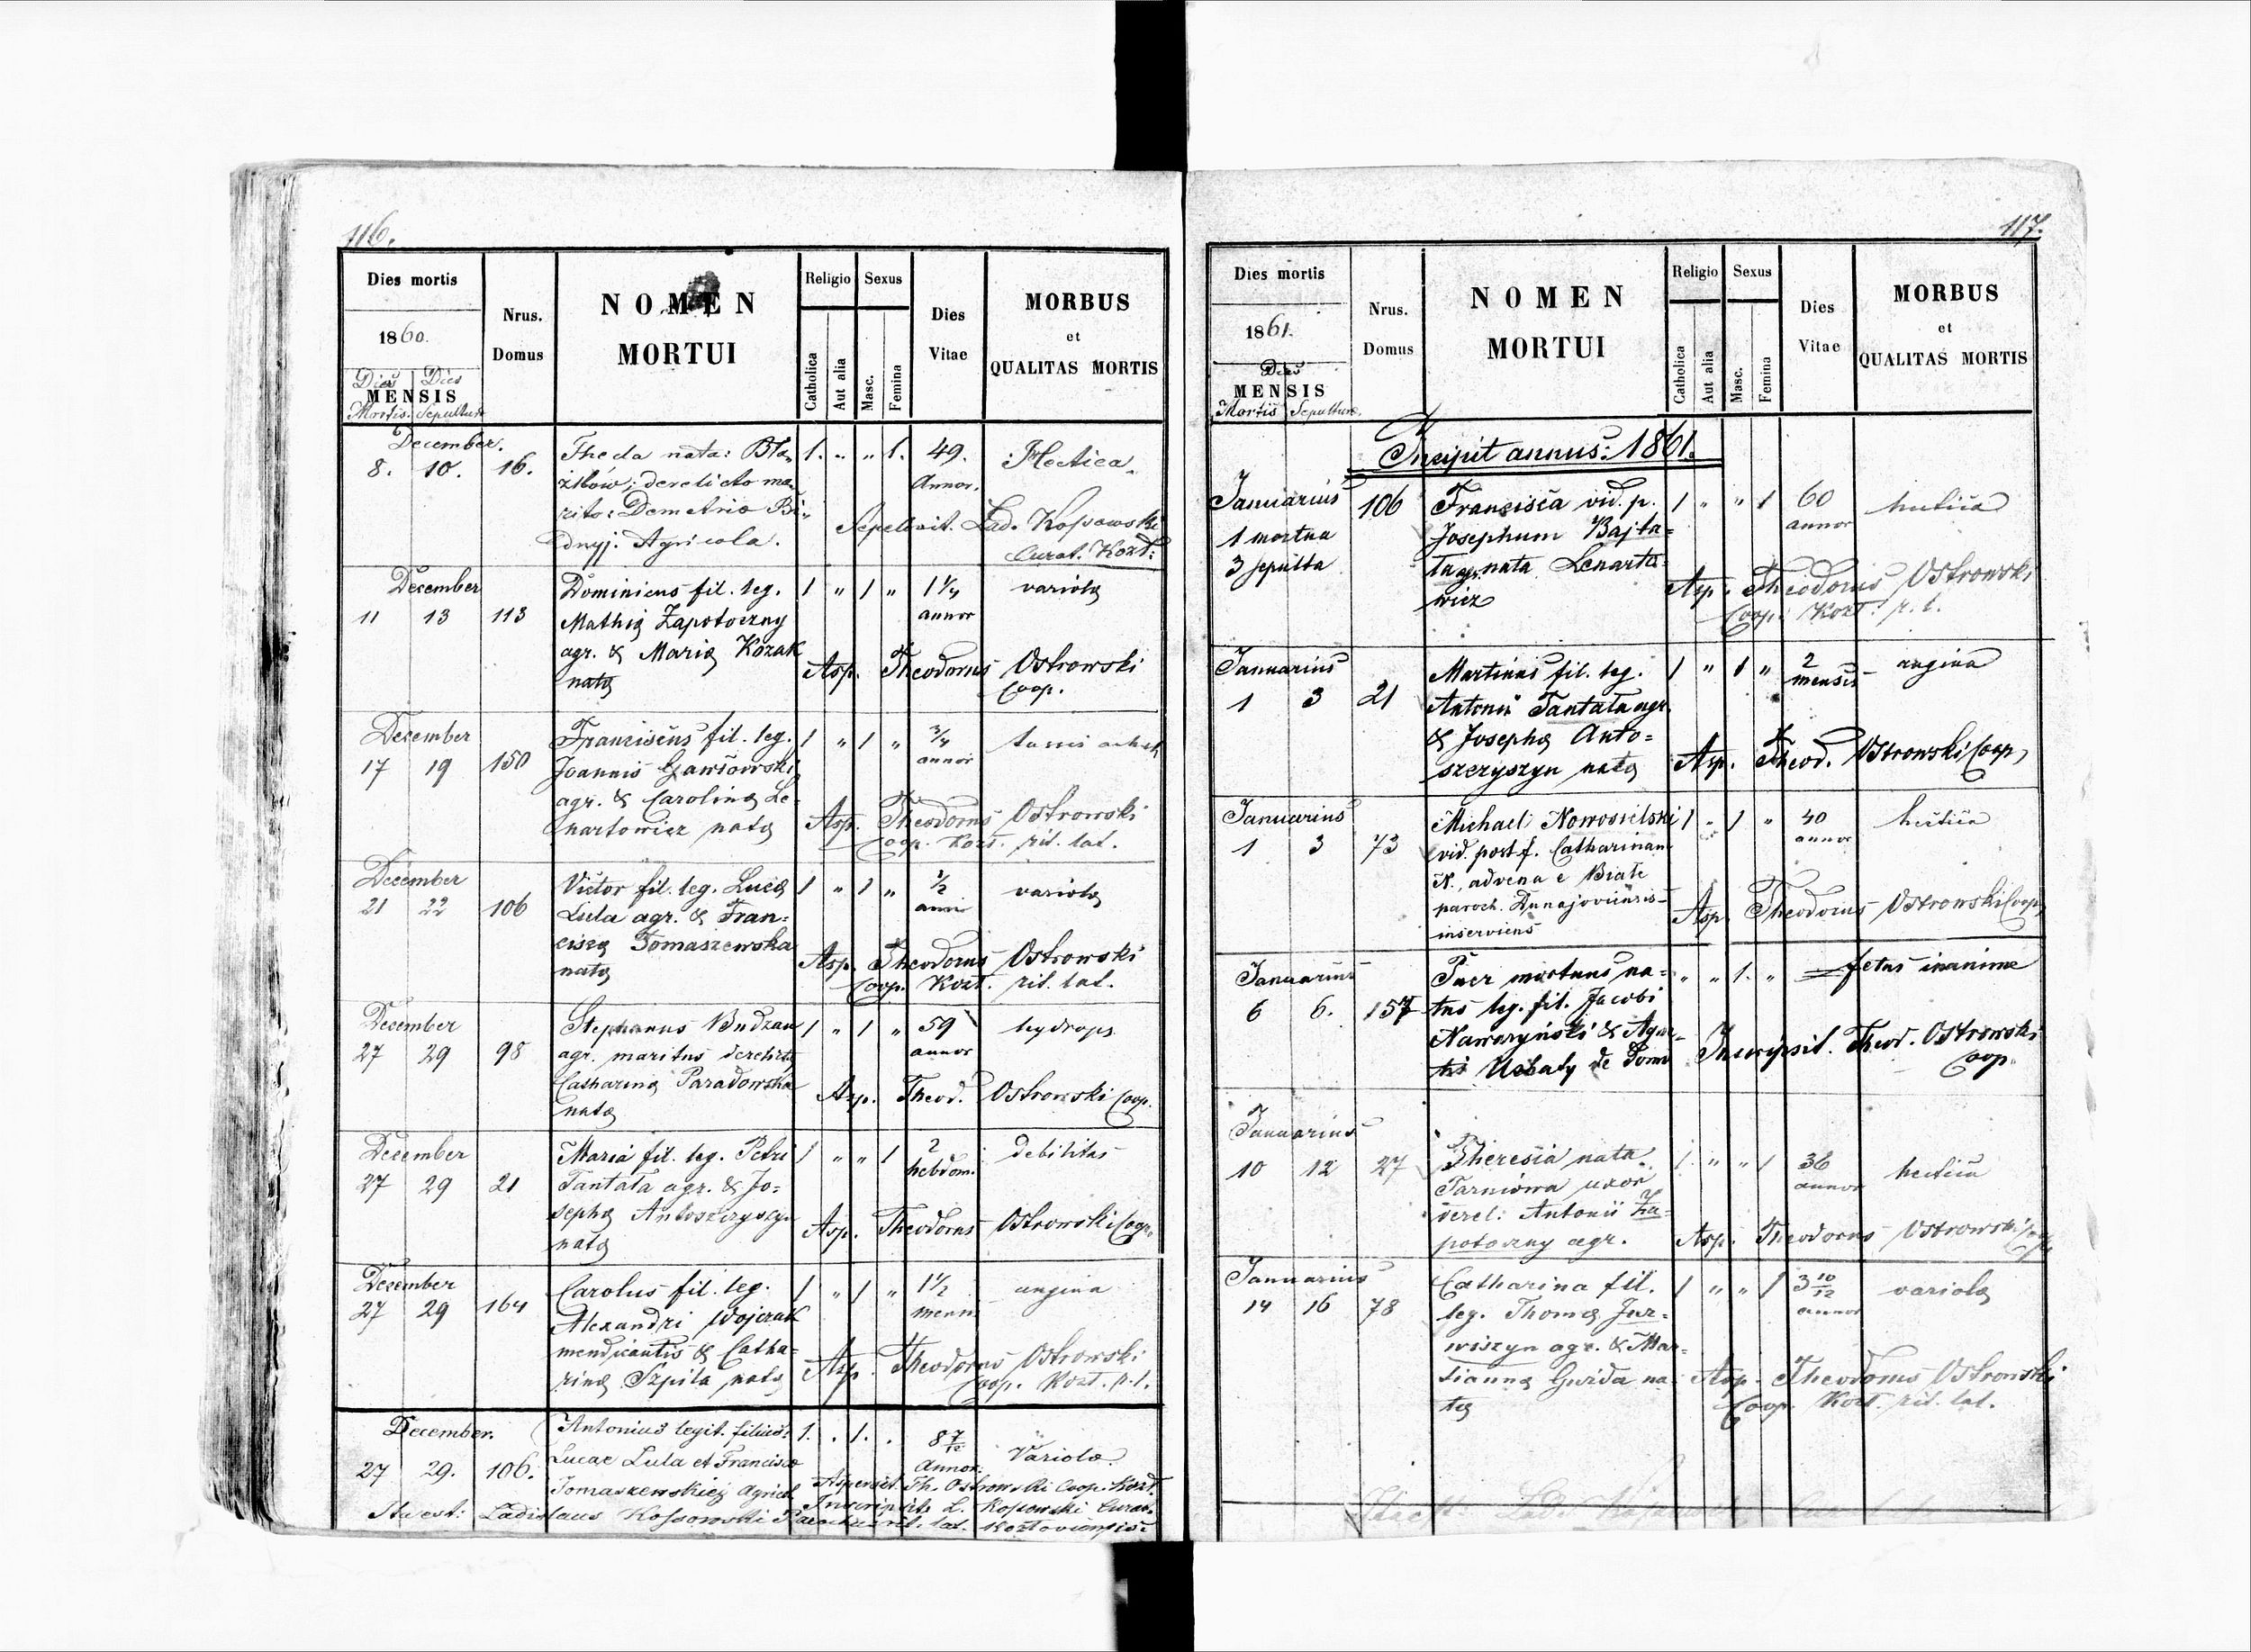 116.
Dies mortis
1860.
Dies Dies
MENSIS
Mortis. Sepulturae
Nrus.
Domus
NOMEN
MORTUI
Religio
Catholica
Aut alia
Sexus
Masc.
Femina
Dies
Vitae
MORBUS
et
QUALITAS MORTIS
December.
8. 10. 16.
Theda nata: Bla
zików; derelicto ma-
rito: Demetrio Bi-
dnyj. Agricola.
1. " " 1. 49. Hectica.
Annor.
Sepelivit. Lad. Kossowski
Curat. Kozł:
December
11 13 113
Dominicus fil. leg.
Mathię Zapotoczny
agr. & Marię Kozak
natę
1 " 1 " 1¼ variolę
annor
Asp. Theodorus Ostrowski
Coop.
December
17 19 150
Franciscus fil. leg.
Joannis Gawłowski
agr. & Carolinę Le-
nartowicz natę
1 " 1 " ¾ tussis
annor
Asp. Theodorus Ostrowski
Coop. Kozł. rit. lat.
December
21 22 106
Victor fil. leg. Lucę
Lula agr. & Fran=
ciscę Tomaszewska
natę
1 " 1 " ½ variolę
anni
Asp. Theodorus Ostrowski
Coop. Kozł. rit. lat.
December
27 29 98
Stephanus Budzan
agr. maritus derelictę
Catharinę Paradowska
natę
1 " 1 " 59 hydrops
annor
Asp. Theod. Ostrowski Coop.
December
27 29 21
Maria fil. leg. Petri
Tantała agr. & Jo=
sephę Antoszczyszyn
natę
1 " " 1 2 debilitas
hebdom.
Asp. Theodorus Ostrowski Coop.
December
27 29 164
Carolus fil. leg.
Alexandri Wojczak
mendicantis & Catha=
rinę Szpila natę
1 " 1 " 1½ angina
mens
Asp. Theodorus Ostrowski
Coop. Kozł. r. l.
December.
27 29. 106.
Antonius legit. filius:
Lucae Lula et Francisca
Tomaszewskiej Agricol
1. . 1. . 8 7/12 Variola
Annor.
Aspersit. Th. Ostrowski Coop. Kozł.
Inscripsit L. Kossowski Curat.
Ladislaus Kossowski Parochus rit. lat. Kozłoviensis
117.
Dies mortis
1861.
Dies
MENSIS
Mortis Sepulturae.
Nrus.
Domus
NOMEN
MORTUI
Religio
Catholica
Aut alia
Sexus
Masc.
Femina
Dies
Vitae
MORBUS
et
QUALITAS MORTIS
Incipit annus: 1861.
Januarius
1 mortua
3 sepulta
106
Francisca vid. p.
Josephum Bajta=
ta agr. nata Lenarto
wicz
1 " " 1 60 hectica
annor
Asp. Theodorus Ostrowski
Coop. Kozł. r. l.
Januarius
1 3 21
Martinus fil. leg.
Antonii Tantała agr.
& Josephę Anto=
szczyszyn natę
1 " 1 " 2 angina
mensis
Asp. Theod. Ostrowski Coop
Januarius
1 3 73
Michael Nowosielski
vid. post f. Catharinam
N., advena e Białe
paroch. Dunajoviensis
inserviens
1 " 1 " 40 hectica
annor
Asp. Theodorus Ostrowski Coop
Januarius
6 6. 157
Puer mortuus na=
tus leg. fil. Jacobi
Nawozyński & Agne-
tis de domo
" " 1. " fetus inanime
Inscripsit. Theod. Ostrowski
Coop.
Januarius
10 12 27
Theresia nata
Tarniowa uxor
derel: Antonii Za=
potoczny agr.
1 " " 1 36 hectica
annor
Asp. Theodorus Ostrowski Coop
Januarius
14 16 78
Catharina fil.
leg. Thomę Jur=
wiszyn agr. & Mar=
iannę Gwida na
tę
1 " " 1 3 10/12 variolę
annor
Asp. Theodorus Ostrowski
Coop. Kozł. rit. lat.